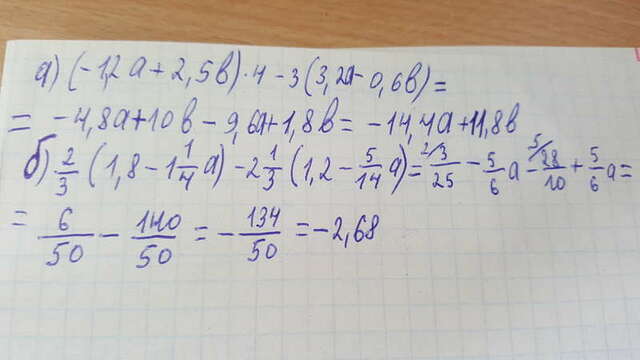 а) (-1,2a + 2,5b)·4 - 3(3,2a - 0,6b) =
= -4,8a + 10b - 9,6a + 1,8b = -14,4a + 11,8b
б) 2/3 (1,8 - 1 1/4 a) - 2 1/3 (1,2 - 5/14 a) = 3/25 - 5/6 a - 28/10 + 5/6 a =
= 6/50 - 140/50 = -134/50 = -2,68